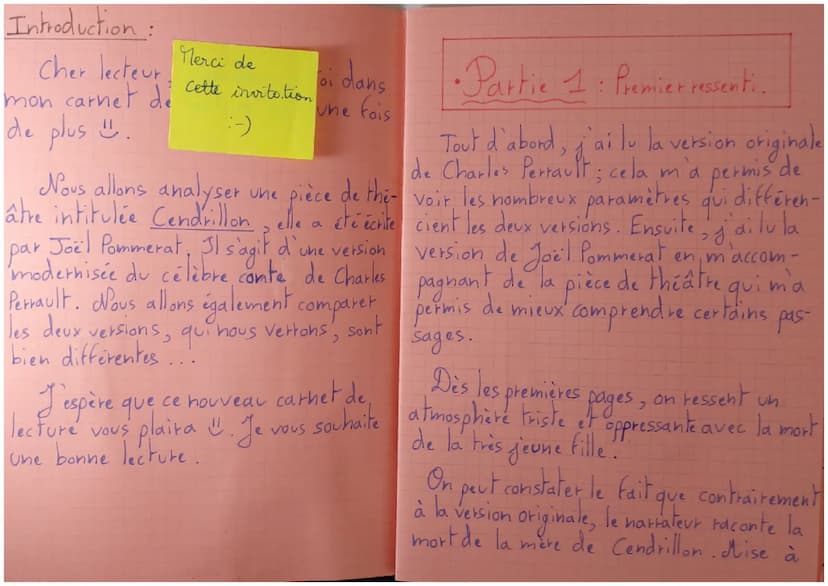 Introduction :
Cher lecteur
oi dans
mon carnet de
une fois
de plus ü.
Merci de
cette invitation
:-)
Nous allons analyser une pièce de thé-
âtre intitulée Cendrillon, elle a été écrite
par Joël Pommerat. Il s'agit d'une version
modernisée du célèbre conte de Charles
Perrault. Nous allons également comparer
les deux versions, qui nous verrons, sont
bien différentes...
J'espère que ce nouveau carnet de
lecture vous plaira ü. Je vous souhaite
une bonne lecture.
• Partie 1 : Premier ressenti.
Tout d'abord, j'ai lu la version originale
de Charles Perrault ; cela m'a permis de
voir les nombreux paramètres qui différen-
cient les deux versions. Ensuite, j'ai lu la
version de Joël Pommerat en m'accom-
pagnant de la pièce de théâtre qui m'a
permis de mieux comprendre certains pas-
sages.
Dès les premières pages, on ressent un
atmosphère triste et oppressante avec la mort
de la très jeune fille.
On peut constater le fait que contrairement
à la version originale, le narrateur raconte la
mort de la mère de Cendrillon. Mise à